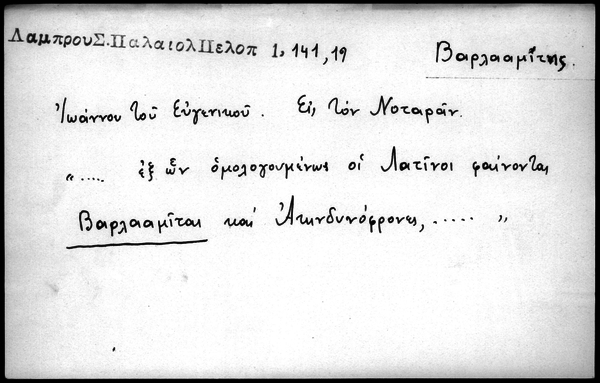 ΛαμπρουΣ.ΠαλαιολΠελοπ 1, 141, 19
Βαρλααμίτης.
Ἰωάννου τοῦ Εὐγενικοῦ. Εἰς τὸν Νοταρᾶν.
„..... ἐξ ὧν ὁμολογουμένως οἱ Λατῖνοι φαίνονται
Βαρλααμῖται καὶ Ἀκινδυνόφρονες, ..... „